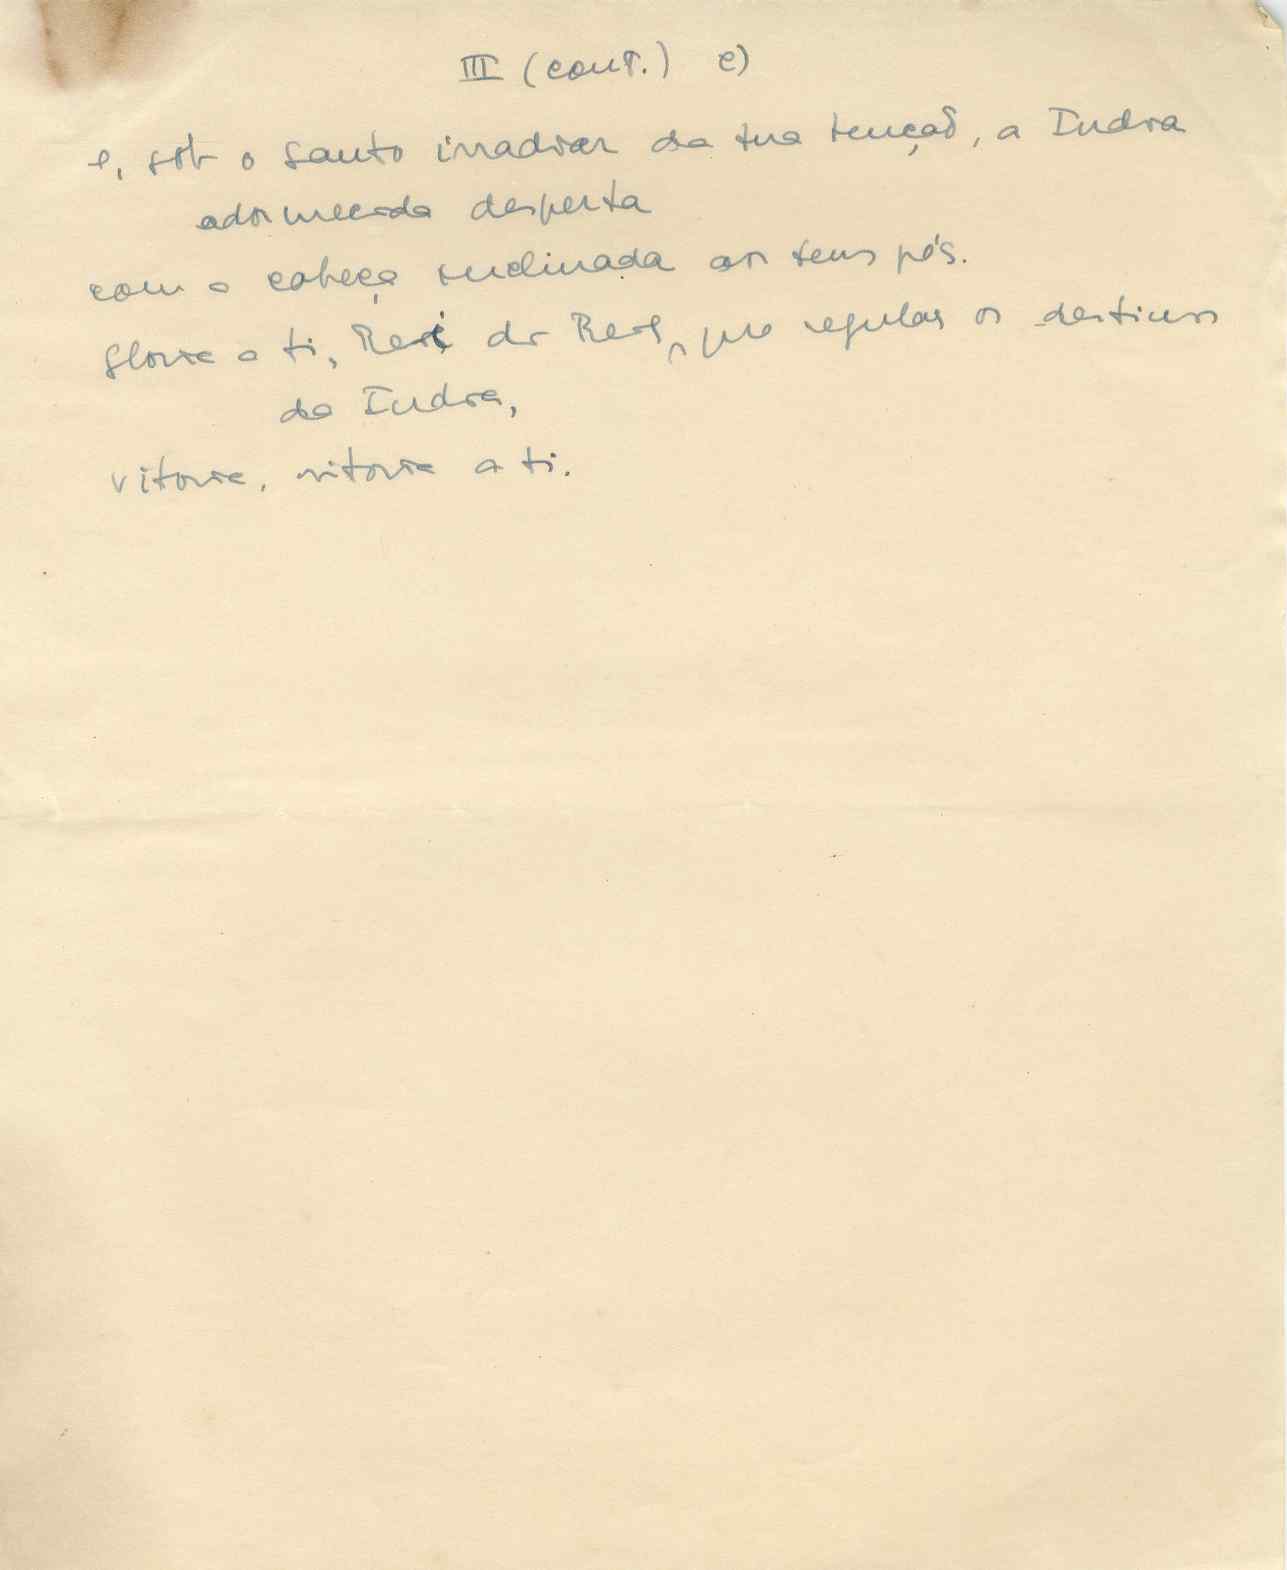 III (cont.) e)
e, sob o santo irradiar da tua tenção, a Índia
adormecida desperta
com a cabeça inclinada aos teus pés.
Glória a ti, Rei dos Reis, que regulas os destinos
da Índia,
vitória, vitória a ti.